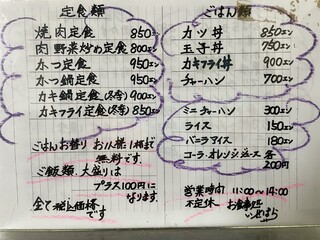 定食類
焼肉定食 850エン
肉野菜炒め定食 800エン
かつ定食 950エン
かつ鍋定食 950エン
カキ鍋定食(冬季) 900エン
カキフライ定食(冬季) 850エン
ごはんお替り お一人様1杯まで
無料です。
ご飯類、大盛りは
プラス100円に
なります。
全て税込価格
です
ごはん類
カツ丼 850エン
玉子丼 750エン
カキフライ丼 900エン
チャーハン 700エン
ミニチャーハン 300エン
ライス 150エン
バニラアイス 180エン
コーラ・オレンジジュース 各
200円
営業時間 11:00~14:00
不定休 お食事処